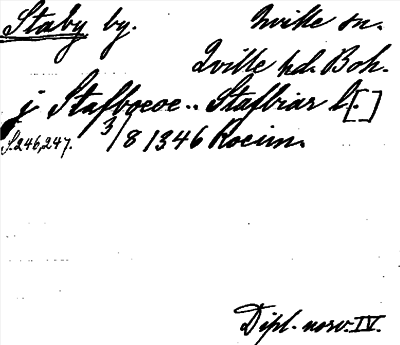 Staby by. Qville sn.
Qville hd. Boh.
j Stafboeoe .. Stafbriar l[.]
S. 246, 247. 3/8 1346 Kocim.
Dipl. norv. IV.